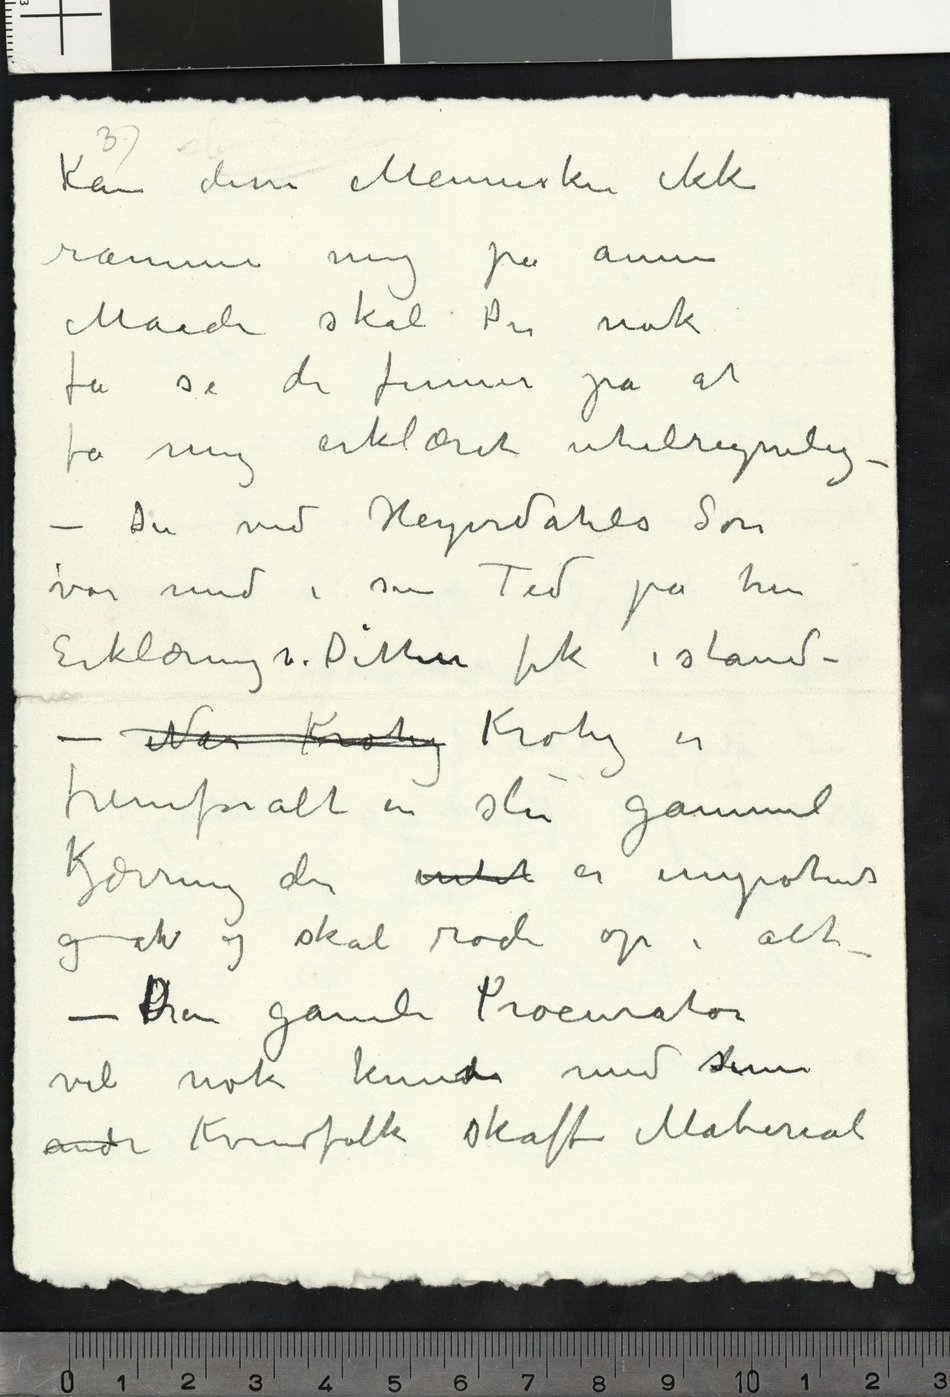 3)
Kan disse Mennesker ikke
ramme mig på annen
Maade skal Du nok
få se de finner på at
få mig erklæret utilregnelig –
– Du ved Heyerdahls Søn
var med i sin Tid på den
Erklæring v. Ditten fik istand –
– Når Krohg Krohg er
fremforalt en slu gammel
Kjærring der intet er impotent
og skal rode op i alt –
– Den gamle Procurator
vil nok kunde med sine
andre Kvindfolk skaffe Material